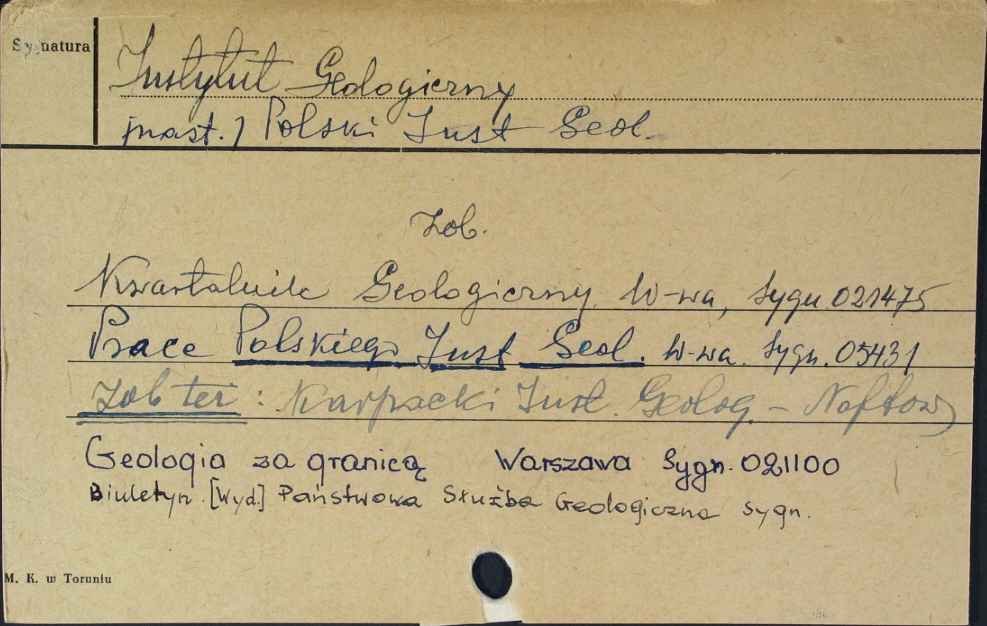 Sygnatura
Instytut Geologiczny
[nast.] Polski Inst Geol.
Zob.
Kwartalnik Geologiczny. W-wa, Sygn 021475
Prace Polskiego Inst Geol. W-wa. Sygn. 05431
Zob też : Karpacki Inst. Geolog - Naftowy
Geologia za granicą Warszawa Sygn. 021100
Biuletyn. [Wyd.] Państwowa Służba Geologiczna sygn.
M. K. w Toruniu